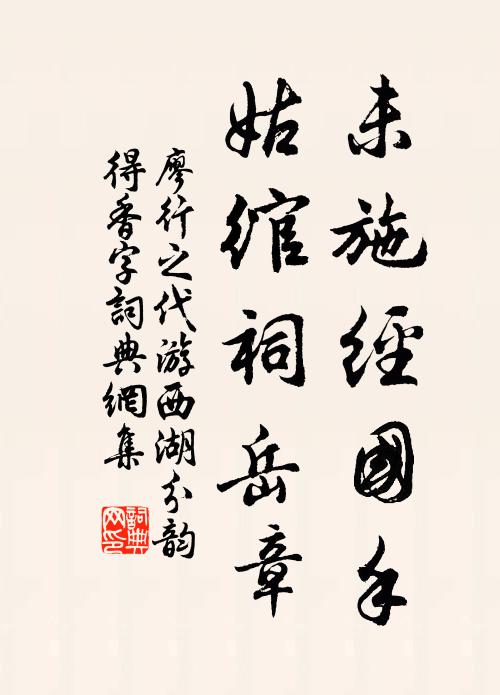 未施經國手
姑綰祠岳章
廖行之代游西湖分韵
得香字詞典網集
詞典
网印